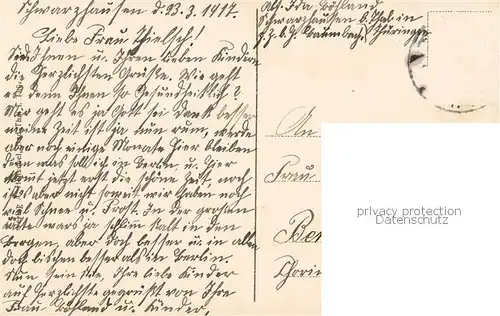 Schwarzhausen d. 23.3.1917.
Liebe Frau Thielsch!
Ihnen u. Ihren lieben Kindern
die herzlichsten Grüße. Wie geht
es denn Ihnen so Gesundheitlich?
Mir geht es ja Gott sei dank besser
meine Zeit ist ja nun rum, werde
aber noch einige Monate hier bleiben
denn was soll ich in Berlin, u. hier
kommt jetzt erst die schöne Zeit, noch
ist es aber nicht soweit wir haben noch
viel Schnee u. Frost. In der großen
Kälte wars ja schlim kalt in den
Bergen, aber doch besser u. in allen
doch bischen besser als in Berlin.
Nun sein Sie, Ihre liebe Kinder
auf herzlichste gegrüßt von Ihre
Frau Böhland u. Kinder.
Abs. Ida Böhland
Schwarzhausen b. Thal in
Thüringen
An
Frau
Ber
privacy protection
Datenschutz